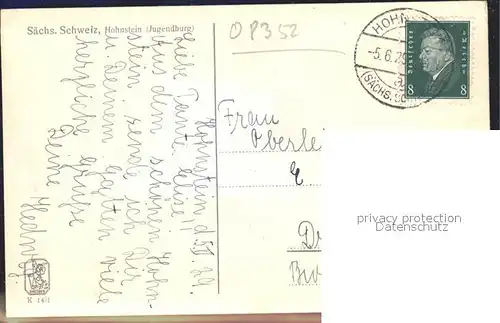 Sächs. Schweiz, Hohnstein (Jugendburg)
OP352
HOHN
-5.6.29
(SÄCHS. SCH
Deutsches Reich
8 8
Hohnstein, d. 5.VI.29.
Liebe Tante Elise!
Aus dem schönen Hohn-
stein sende ich Dir
u. Deinem viele
herzliche Grüße
Deine
Hedwig.
Frau
Oberle
D
privacy protection
Datenschutz
K 1441